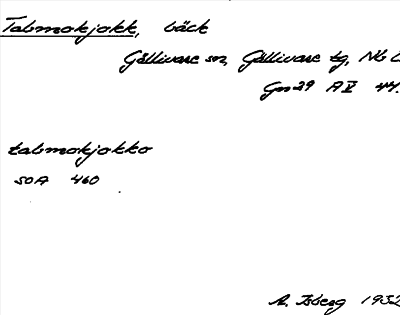 Talmokjokk, bäck
Gällivare sn, Gällivare tg, Nb L
Gm29 A V 44.
talmokjokko
SOA 460
A. Isberg 1932